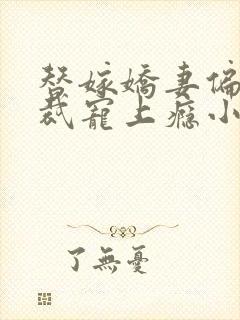 替嫁嬌妻偏
裁寵上癮小
了無憂